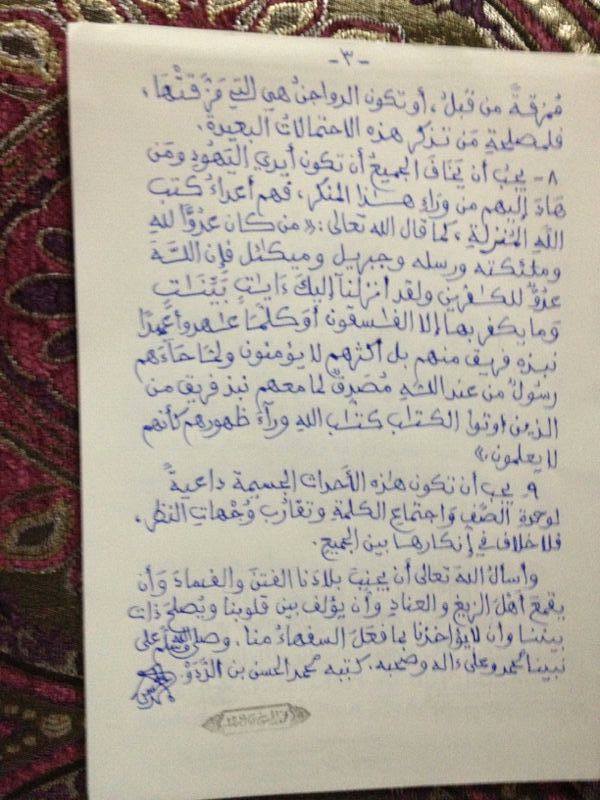 -٣-
مُمزقةً من قبلُ، أو تكون الدواجنُ هي التي مَزَّقتْهَا،
فلمصلحةِ مَن تذكر هذه الاحتمالاتُ البعيدة.
٨- يجبُ أن يَخافَ الجميعُ أن تكون أيدي اليَهُودِ ومَن
هَادَ إليهم من وراءِ هذا المنكر، فهم أعداءُ كتب
اللهِ المُنزلةِ، كما قال الله تعالى: «من كان عدُوًّا لله
وملئكته ورسله وجبريل وميكئل فإن اللَّه
عدُوٌّ للكٰفرين ولقد أنزلنَا إليكَ ءَايٰتٍ بَيِّنَٰتٍ
وَما يكفر بها إلا الفٰسقون أوَكلَّمَا عٰهدوا عَهدًا
نبذه فريق منهم بل أكثرهم لا يؤمنون ولمَّا جَاءَهم
رسُولٌ من عند اللَّه مُصَدِّقٌ لما معهم نبذ فريق من
الذين أوتوا الكتٰب كتٰب الله ورآءَ ظهورهم كأنهم
لا يعلمون.»
٩. يجب أن تكون هٰذه الأحداث الجسيمة داعيةً
لوحدةِ الصَّفِ وَاجتماع الكلمةِ وتقارُب وُجْهاتِ النظر،
فلا خلافَ في إنكارهَا بين الجميع.
وأسالُ اللهَ تعالى أن يُجنِّبَ بلادَنا الفتنَ والفسادَ وَأن
يقمعَ أهلَ الزيغِ والعنادِ وَأن يؤلفَ بين قلوبنا ويُصلحَ ذات
بيننا وأن لا يؤاخِذَنا بما فعلَ السفهاءُ منا. وصلى الله وسلم على
نبينا محمد وعلى ءاله وصحبه. كتبه محمد الحسن بن الدَّدَوْ.